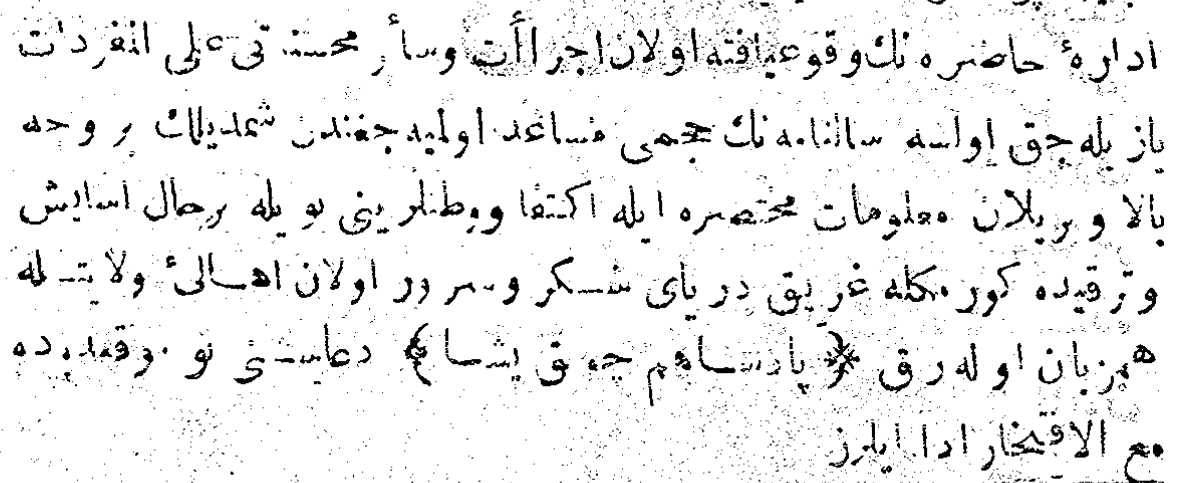 ادارهٔ حاضره نك وقوعيافته اولان اجراأت وسائر محسناتى على المفردات
يازيله جق اولسه سالنامه نك حجمى مساعد اوليه جغندن شمديلك بر وجه
بالا ويريلان معلومات مختصره ايله اكتفا ووطنلرينى بويله برحال اسايش
وترقيده كورمكله غريق درياى تشكر وسرور اولان اهالئ ولايتله
همزبان اوله رق ﴿ پادشاهم چوق يشا ﴾ دعاسنى بو موقعده ده
مع الافتخار ادا ايلرز